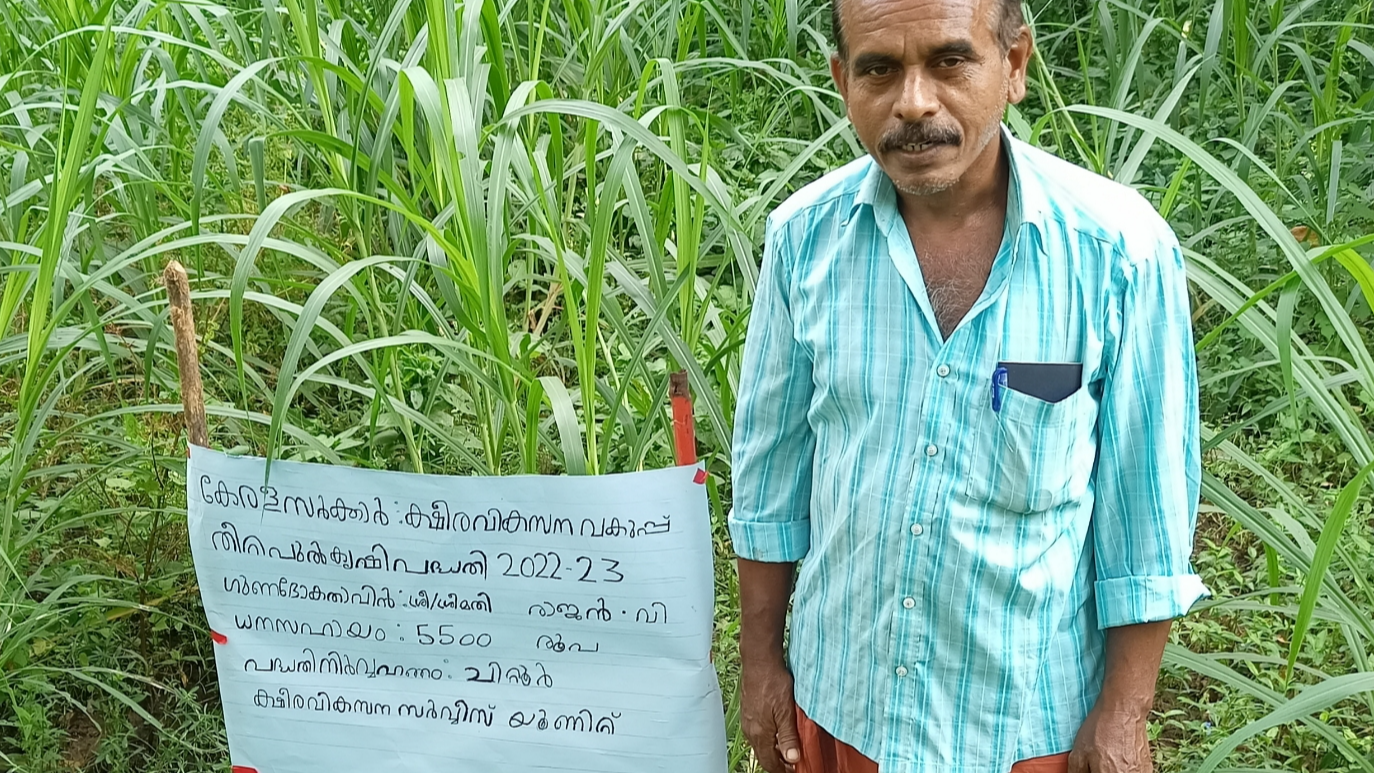 കേരളസർക്കാർ : ക്ഷീരവികസന വകുപ്പ്
തീറ്റപുൽകൃഷി പദ്ധതി 2022-23
ഗുണഭോക്താവിൻ : ശ്രീ/ശ്രീമതി രാജൻ . വി
ധനസഹായം : 5500 രൂപ
പദ്ധതി നിർവ്വഹണം : ചിറ്റൂർ
ക്ഷീരവികസന സർവ്വീസ് യൂണിറ്റ്